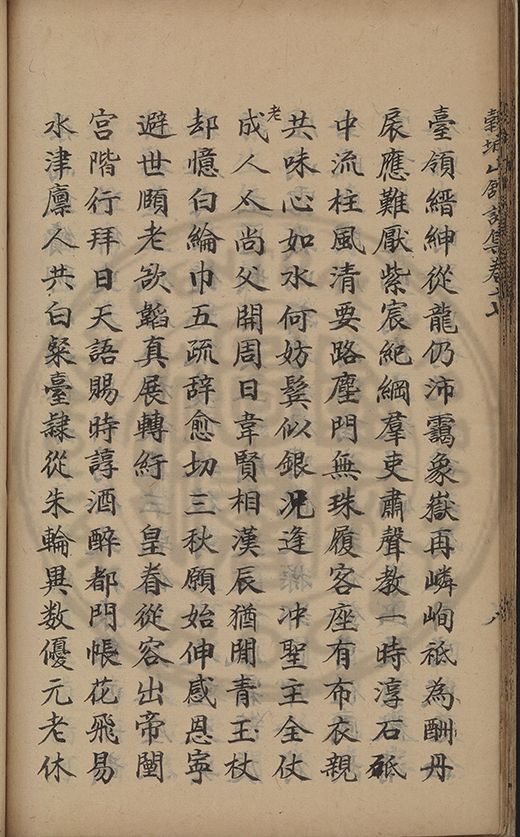 榖城山館詩集卷
八
臺領縉紳從龍仍沛靄象嶽再嶙峋祗為酬丹
扆應難厭紫宸紀綱羣吏肅聲教一時淳石砥
中流柱風清要路塵門無珠履客座有布衣親
共味心如水何妨鬂似銀况逢冲聖主全仗
老
成人太尚父開周日韋賢相漢辰猶開青玉杖
却憶白綸巾五疏辞愈切三秋願始伸感恩寧
避世頤老欲韜真展轉紆 皇眷從容出帝闉
宮階行拜日天語賜時諄酒醉都門帳花飛易
水津廪人共白粲臺隷從朱輪異数優元老休